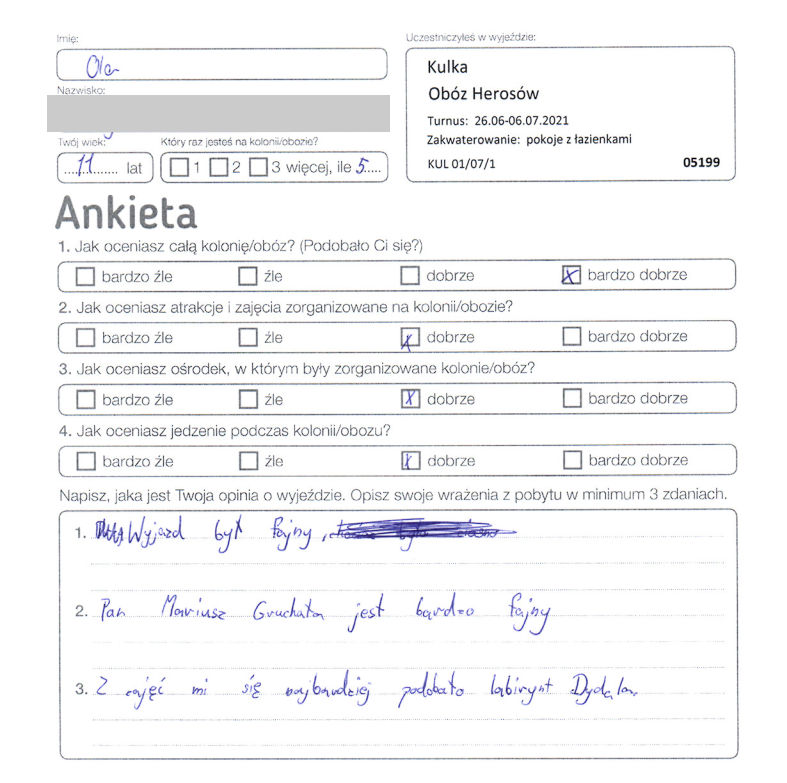 Imię:
Ola
Uczestniczyłeś w wyjeździe:
Kulka
Obóz Herosów
Turnus: 26.06-06.07.2021
Zakwaterowanie: pokoje z łazienkami
KUL 01/07/1 05199
Nazwisko:
Twój wiek:
11 lat
Który raz jesteś na kolonii/obozie?
1 2 3 więcej, ile 5
Ankieta
1. Jak oceniasz całą kolonię/obóz? (Podobało Ci się?)
bardzo źle źle dobrze bardzo dobrze
2. Jak oceniasz atrakcje i zajęcia zorganizowane na kolonii/obozie?
bardzo źle źle dobrze bardzo dobrze
3. Jak oceniasz ośrodek, w którym były zorganizowane kolonie/obóz?
bardzo źle źle dobrze bardzo dobrze
4. Jak oceniasz jedzenie podczas kolonii/obozu?
bardzo źle źle dobrze bardzo dobrze
Napisz, jaka jest Twoja opinia o wyjeździe. Opisz swoje wrażenia z pobytu w minimum 3 zdaniach.
1. Wyjazd był fajny,
2. Pan Mariusz Gruchata jest bardzo fajny
3. Z zajęć mi się najbardziej podobało labirynt Dydala.